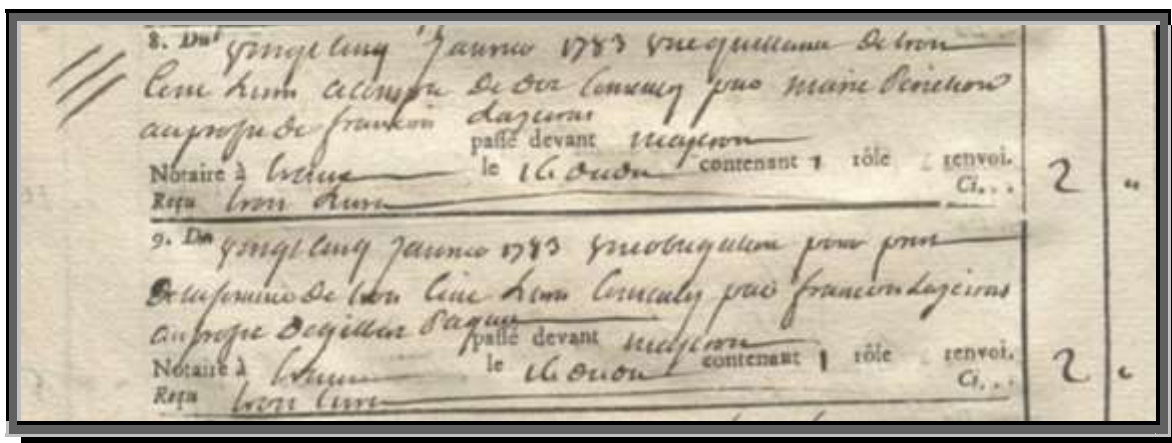 8. Du vingt cinq Janvier 1783 une quittance de trois
Cent livres acompte de dot Consenty par marie
au profit de françois Lageiras
passé devant
Notaire à le 16 dudit contenant 1 rôle renvoi.
Reçu trois livres Ci... 2 "
9. Du vingt cinq Janvier 1783 une obligation pour pret
de la somme de trois Cent livres Consenty par françois Lageiras
au profit de
passé devant
Notaire à le 16 dudit contenant 1 rôle renvoi.
Reçu trois livres Ci... 2 "